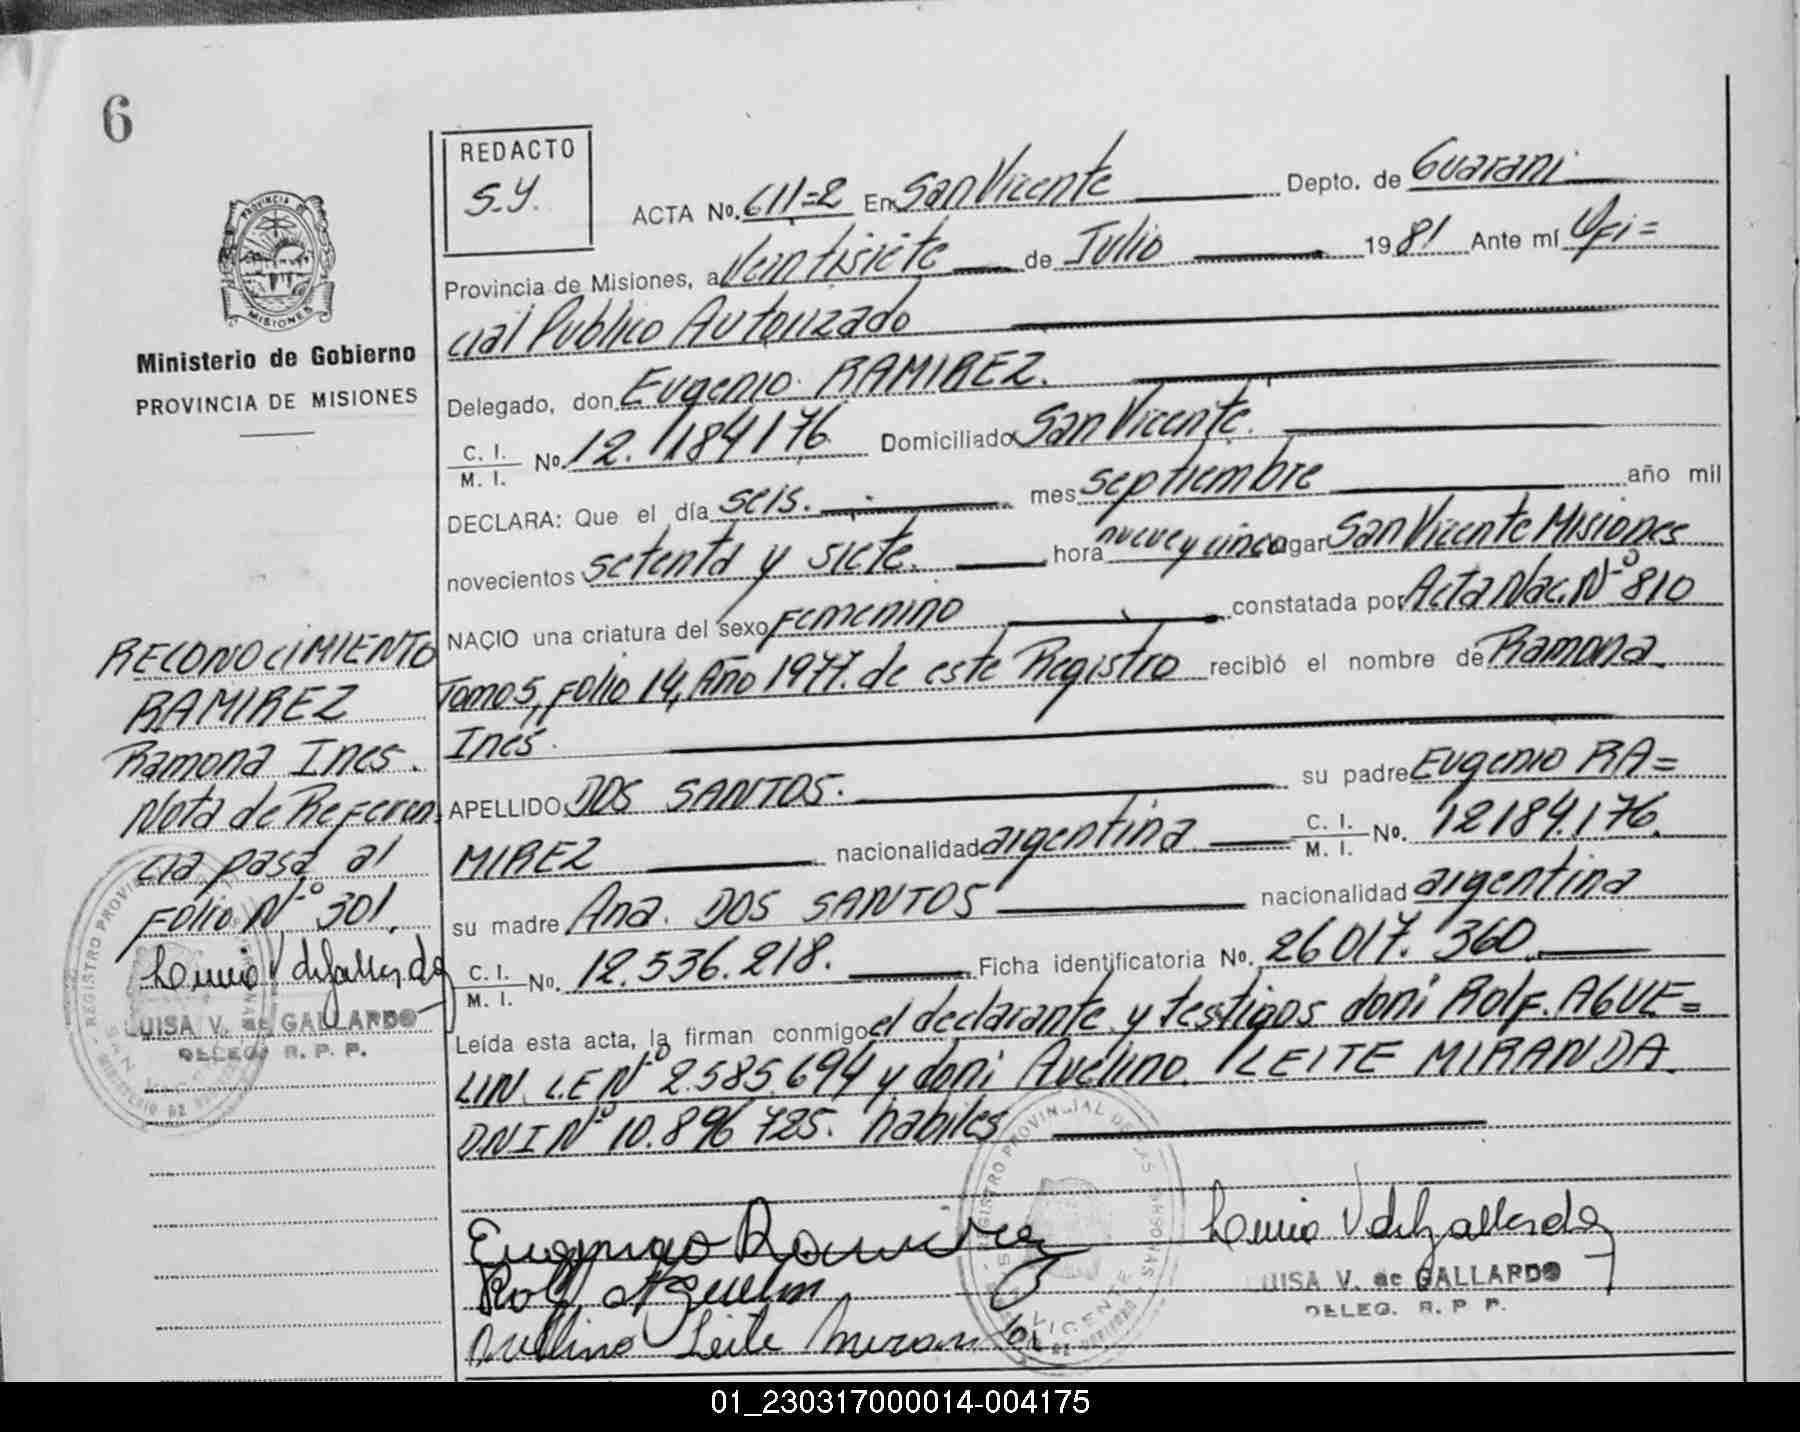 6
REDACTO
S.Y.
ACTA No. 611=2 En San Vicente Depto. de Guarani
Provincia de Misiones, a Veintisiete de Julio 1981 Ante mí Ofi=
cial Publico Autorizado
Delegado, don Eugenio RAMIREZ.
C. I.
M. I. No. 12.184176 Domiciliado San Vicente.
DECLARA: Que el día seis. mes septiembre año mil
novecientos setenta y siete. hora nueve y cinco lugar San Vicente Misiones
NACIO una criatura del sexo Femenino constatada por Acta Nac. Nº 810
Tomo 5, Folio 14, Año 1977. de este Registro recibió el nombre de Ramona
Ines.
APELLIDO DOS SANTOS. su padre Eugenio RA=
MIREZ nacionalidad argentina C. I.
M. I. No. 12184.176.
su madre Ana. DOS SANTOS nacionalidad argentina
C. I.
M. I. No. 12.536.218. Ficha identificatoria No. 26017.360.
Leída esta acta, la firman conmigo el declarante y testigos doni Rolf. AGUE=
LIN. L.E Nº 2.585.694 y doni Avelino. LEITE MIRANDA.
D.N.I Nº 10.896.725. habiles
Eugenio Ramirez
Rolf Aguelin
Avelino Leite Miranda
LUISA V. de GALLARDO
DELEG. R. P. P.
REGISTRO PROVINCIAL DE LAS PERSONAS
SAN VICENTE
PROVINCIA DE
MISIONES
Ministerio de Gobierno
PROVINCIA DE MISIONES
RECONOCIMIENTO
RAMIREZ
Ramona Ines.
Nota de Referen
cia pasa al
Folio Nº 301.
LUISA V. de GALLARDO
DELEG. R. P. P.
01_230317000014-004175